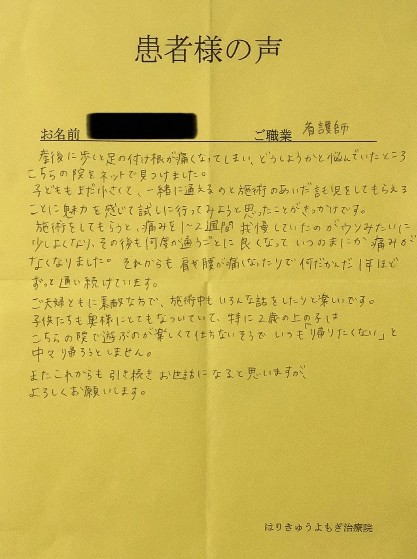 患者様の声
お名前
ご職業 看護師
産後に歩くと足の付け根が痛くなってしまい、どうしようかと悩んでいたところ
こちらの院をネットで見つけました。
子どももまだ小さくて、一緒に通えるのと施術のあいだ託児をしてもらえる
ことに魅力を感じて試しに行ってみようと思ったことがきっかけです。
施術をしてもらうと、痛みを1〜2週間我慢していたのがウソみたいに
少しよくなり、その後も何度か通うごとに良くなっていつのまにか痛みが
なくなりました。それからも肩や腰が痛くなったりで何だかんだ1年ほど
ずっと通い続けています。
ご夫婦ともに素敵な方で、施術中もいろんな話をしたりと楽しいです。
子供たちも奥様にとてもなついていて、特に2歳の上の子は
こちらの院で遊ぶのが楽しくて仕方ないそうでいつも「帰りたくない」と
中々帰ろうとしません。
またこれからも引き続きお世話になると思いますが、
よろしくお願いします。
はりきゅうよもぎ治療院